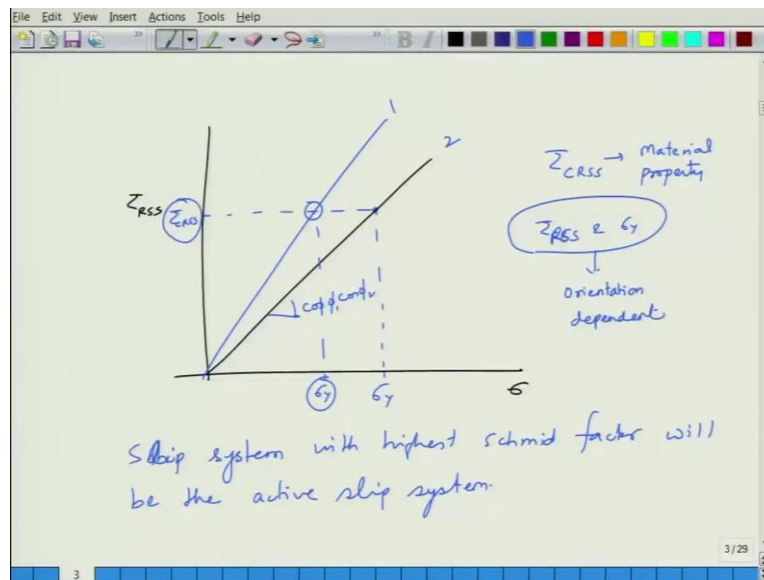 File Edit View Insert Actions Tools Help
B I
1
2
τRSS τCRSS
τCRSS → Material
property
τRSS & σy
Orientation
dependent
σy σy σ
Slip system with highest schmid factor will
be the active slip system.
3/29
3